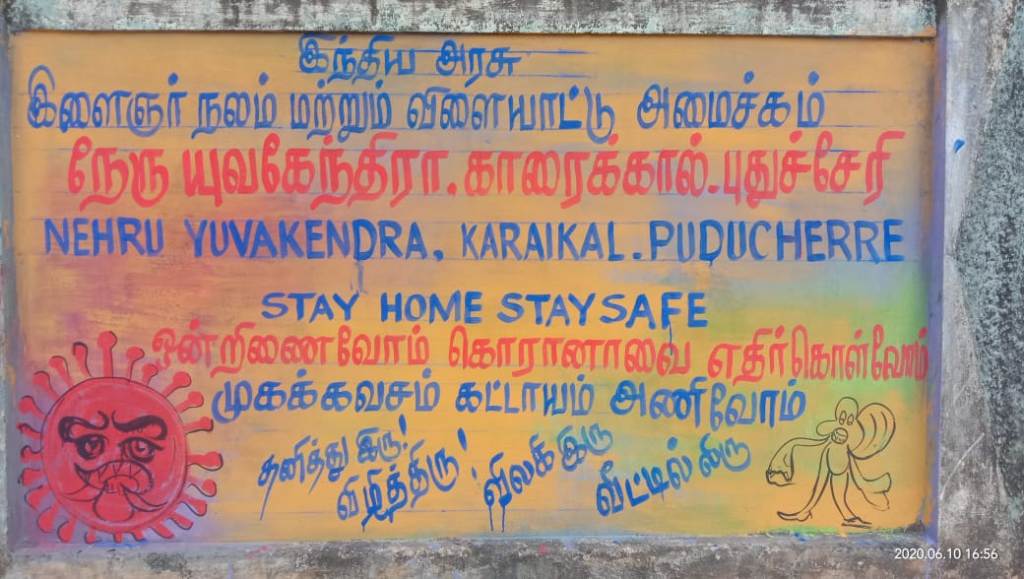 இந்திய அரசு
இளைஞர் நலம் மற்றும் விளையாட்டு அமைச்சகம்
நேரு யுவகேந்திரா. காரைக்கால். புதுச்சேரி
NEHRU YUVAKENDRA, KARAIKAL. PUDUCHERRE
STAY HOME STAY SAFE
ஒன்றிணைவோம் கொரானாவை எதிர்கொள்வோம்
முகக்கவசம் கட்டாயம் அணிவோம்
தனித்து இரு!
விழித்திரு!
விலகி இரு
வீட்டில் இரு
2020.06.10 16:56